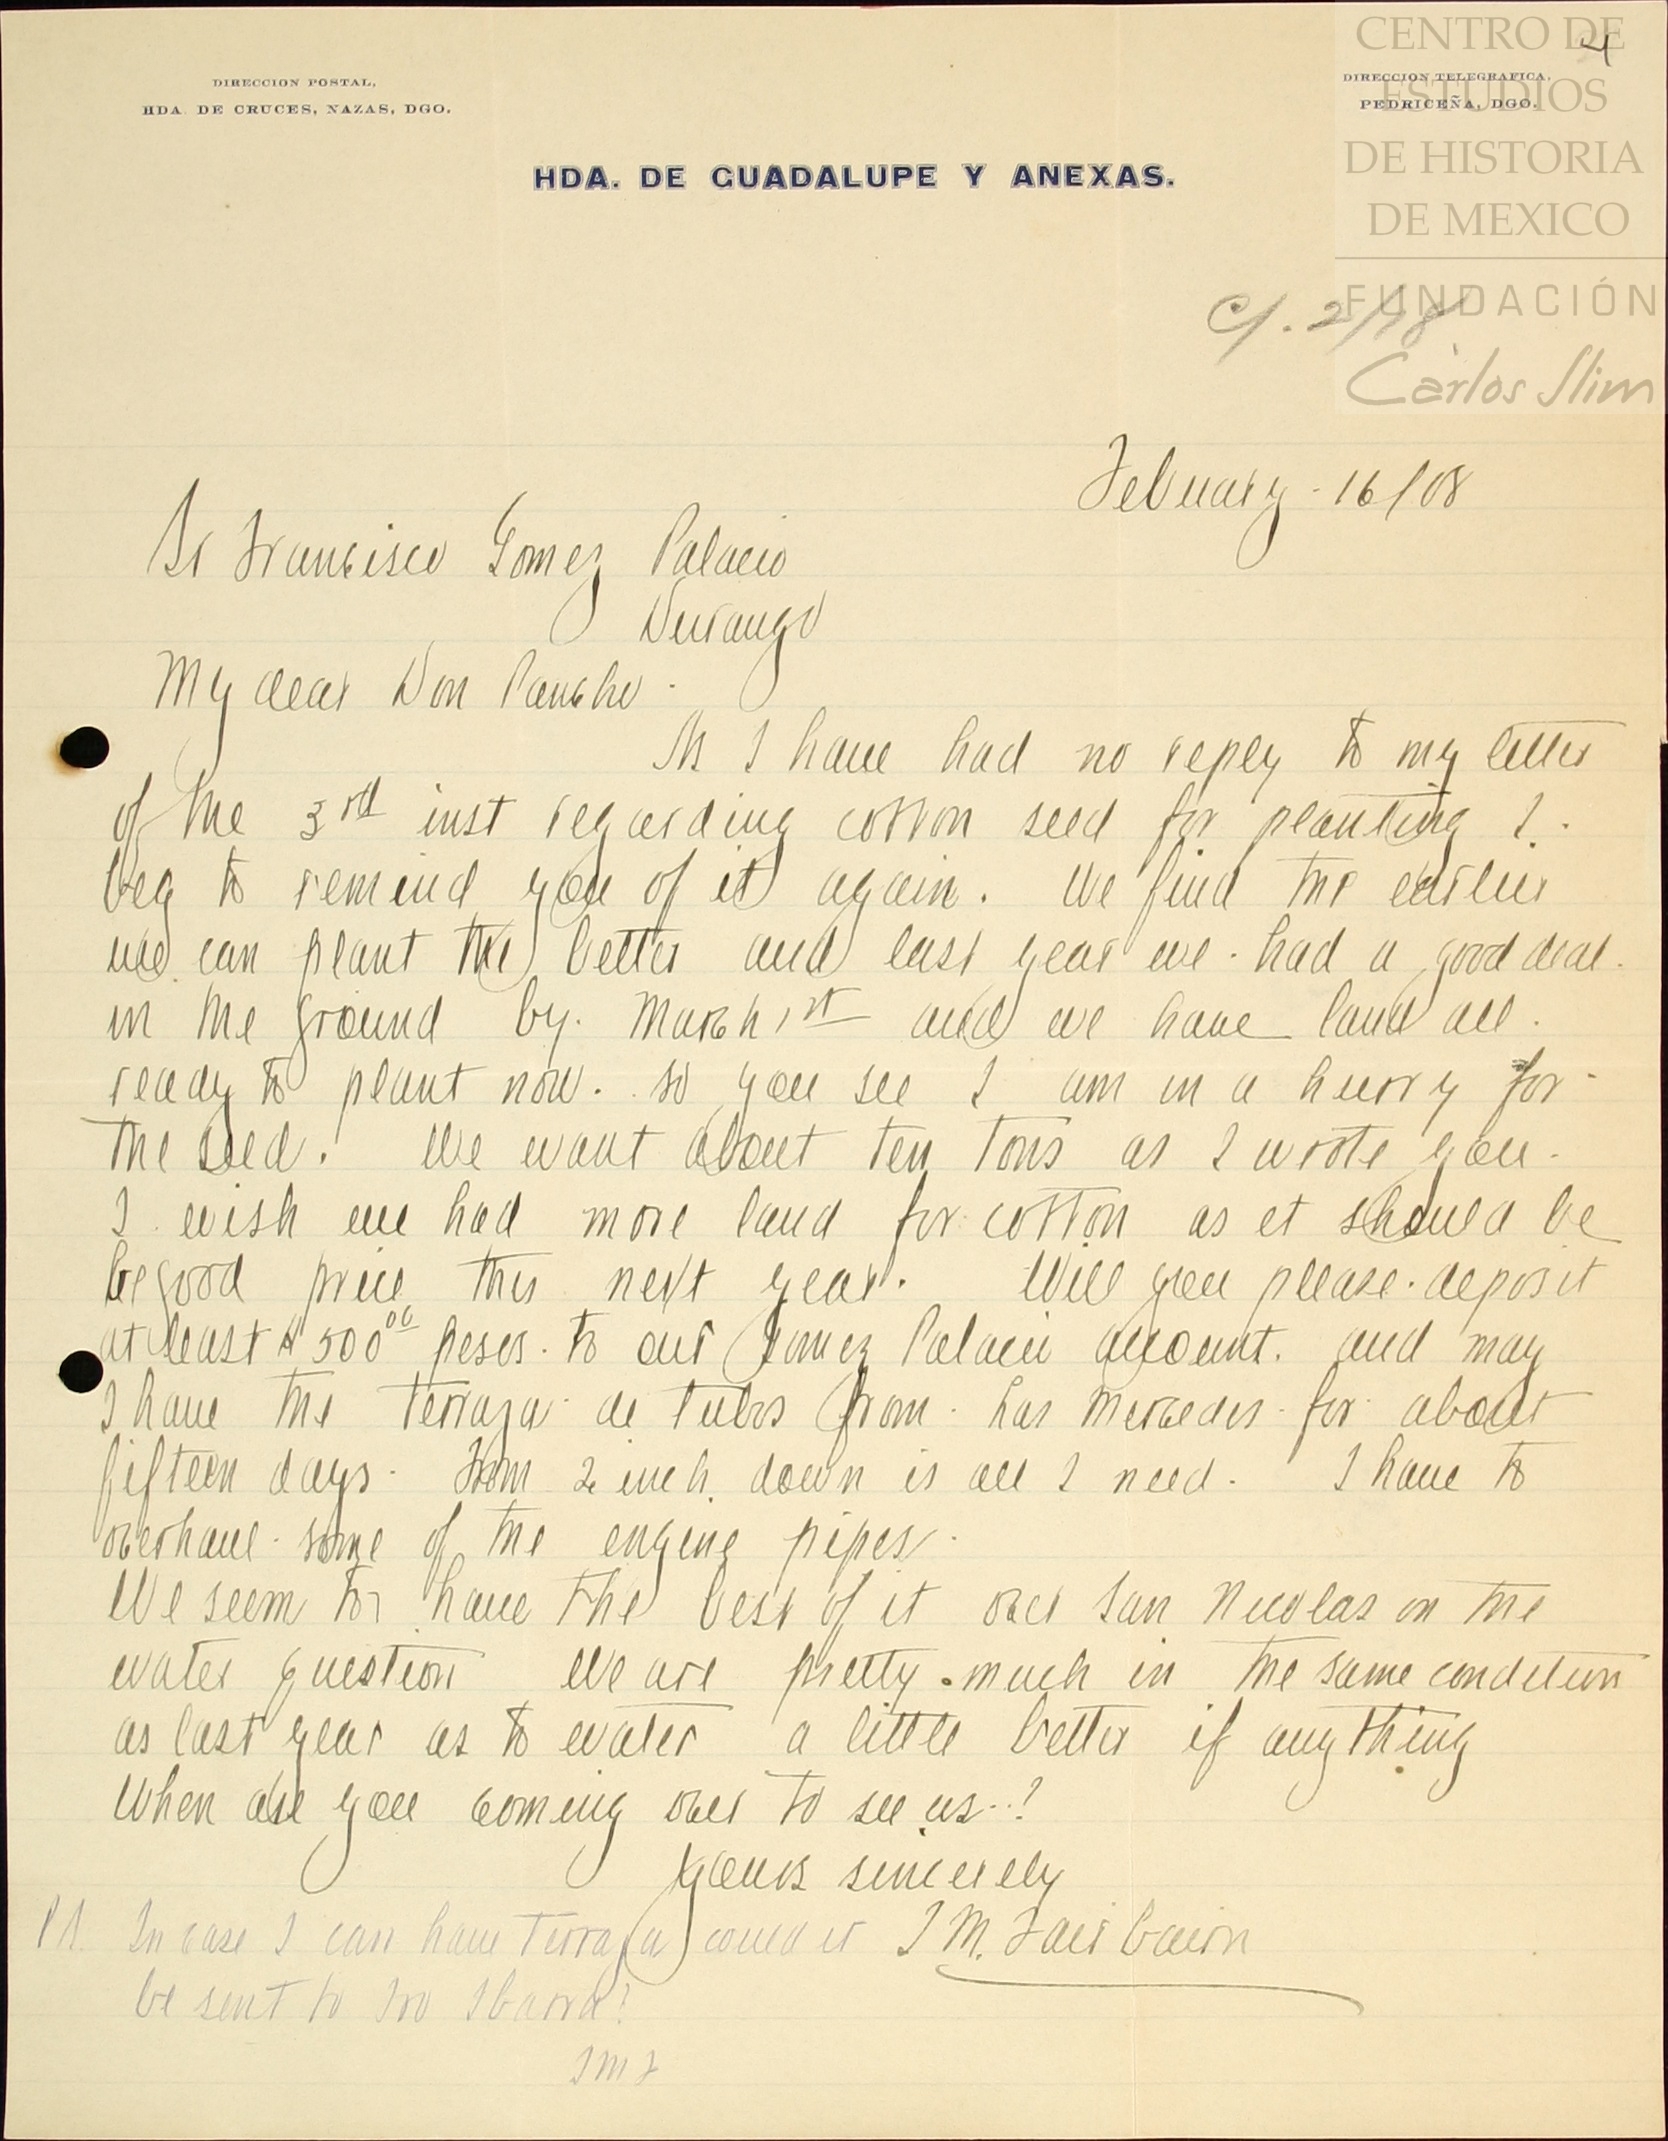 CENTRO DE
ESTUDIOS
DE HISTORIA
DE MEXICO
FUNDACIÓN
Carlos Slim
4
DIRECCION POSTAL,
HDA. DE CRUCES, NAZAS, DGO.
DIRECCION TELEGRAFICA,
PEDRICEÑA, DGO.
HDA. DE GUADALUPE Y ANEXAS.
C/. 2/18
February - 16/08
Sr Francisco Gomez Palacio
Durango
My dear Don Pancho -
As I have had no reply to my letter
of the 3rd inst regarding cotton seed for planting I
beg to remind you of it again. We find the earlier
we can plant the better and last year we had a good deal
in the ground by March 1st and we have land all
ready to plant now. so you see I am in a hurry for
the seed. We want about ten tons as I wrote you.
I wish we had more land for cotton as it should be
be good price this next year. Will you please deposit
at least $500.00 pesos to our Gomez Palacio account. and may
I have the terraja de tubos from Las Mercedes for about
fifteen days. From 2 inch down is all I need. I have to
overhaul some of the engine pipes.
We seem to have the best of it over San Nicolas on the
water question We are pretty much in the same condition
as last year as to water a little better if anything
When are you coming over to see us..?
Yours sincerely
J M. Fairbairn
P.S. In case I can have terraja could it
be sent to Ibarra?
JMF